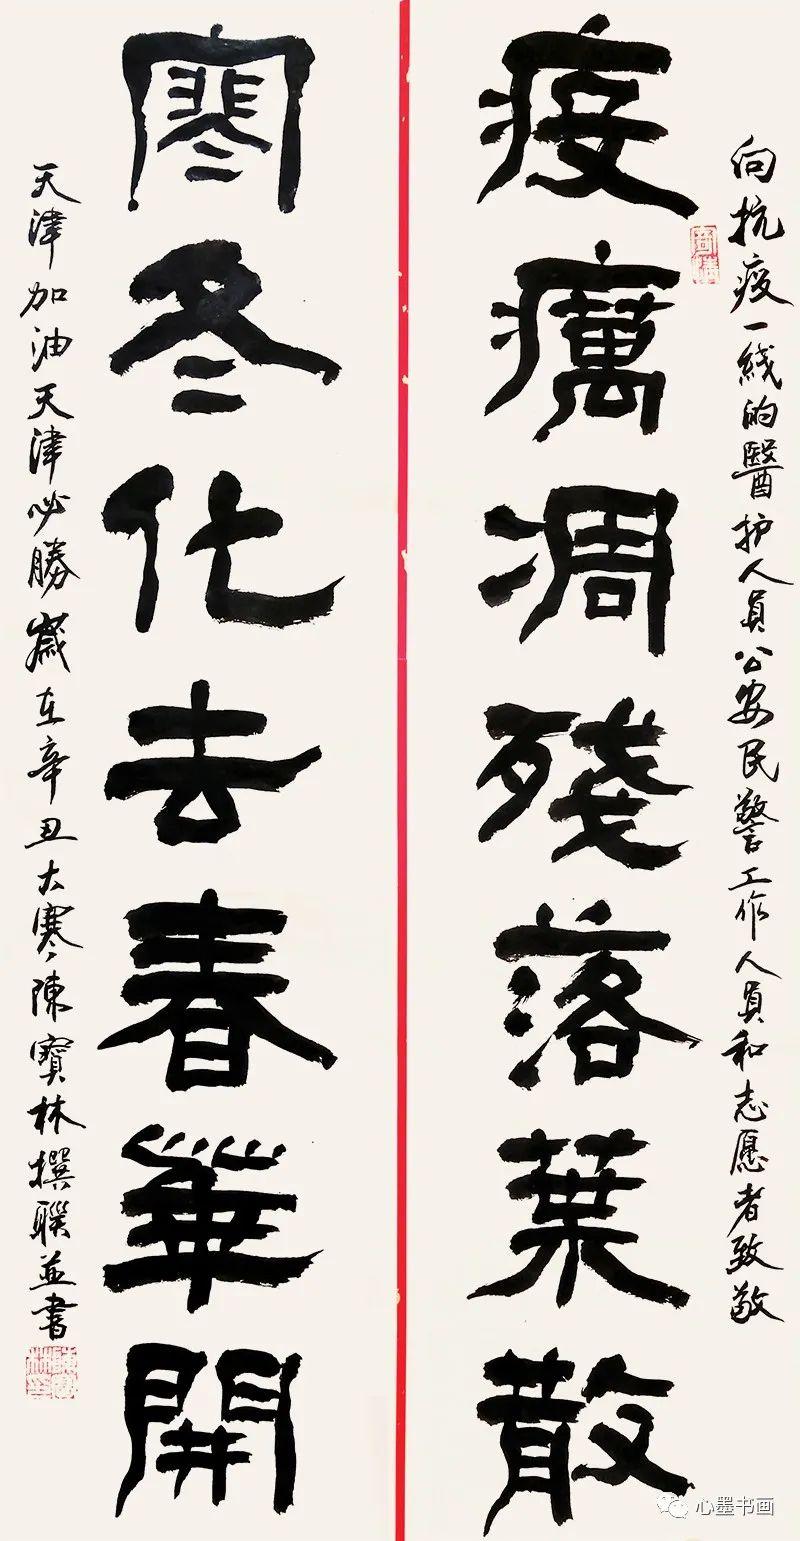 向抗疫一綫的醫护人員公安民警工作人員和志愿者致敬
疫癘凋殘落葉散
寒冬化去春華開
天津加油天津必勝歲在辛丑大寒陳寶林撰聯並書
心墨书画